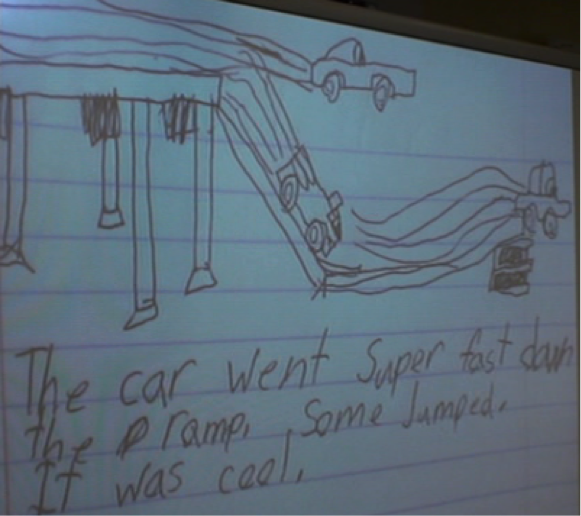 The car went Super fast down
the ramp. Some Jumped.
It was cool.